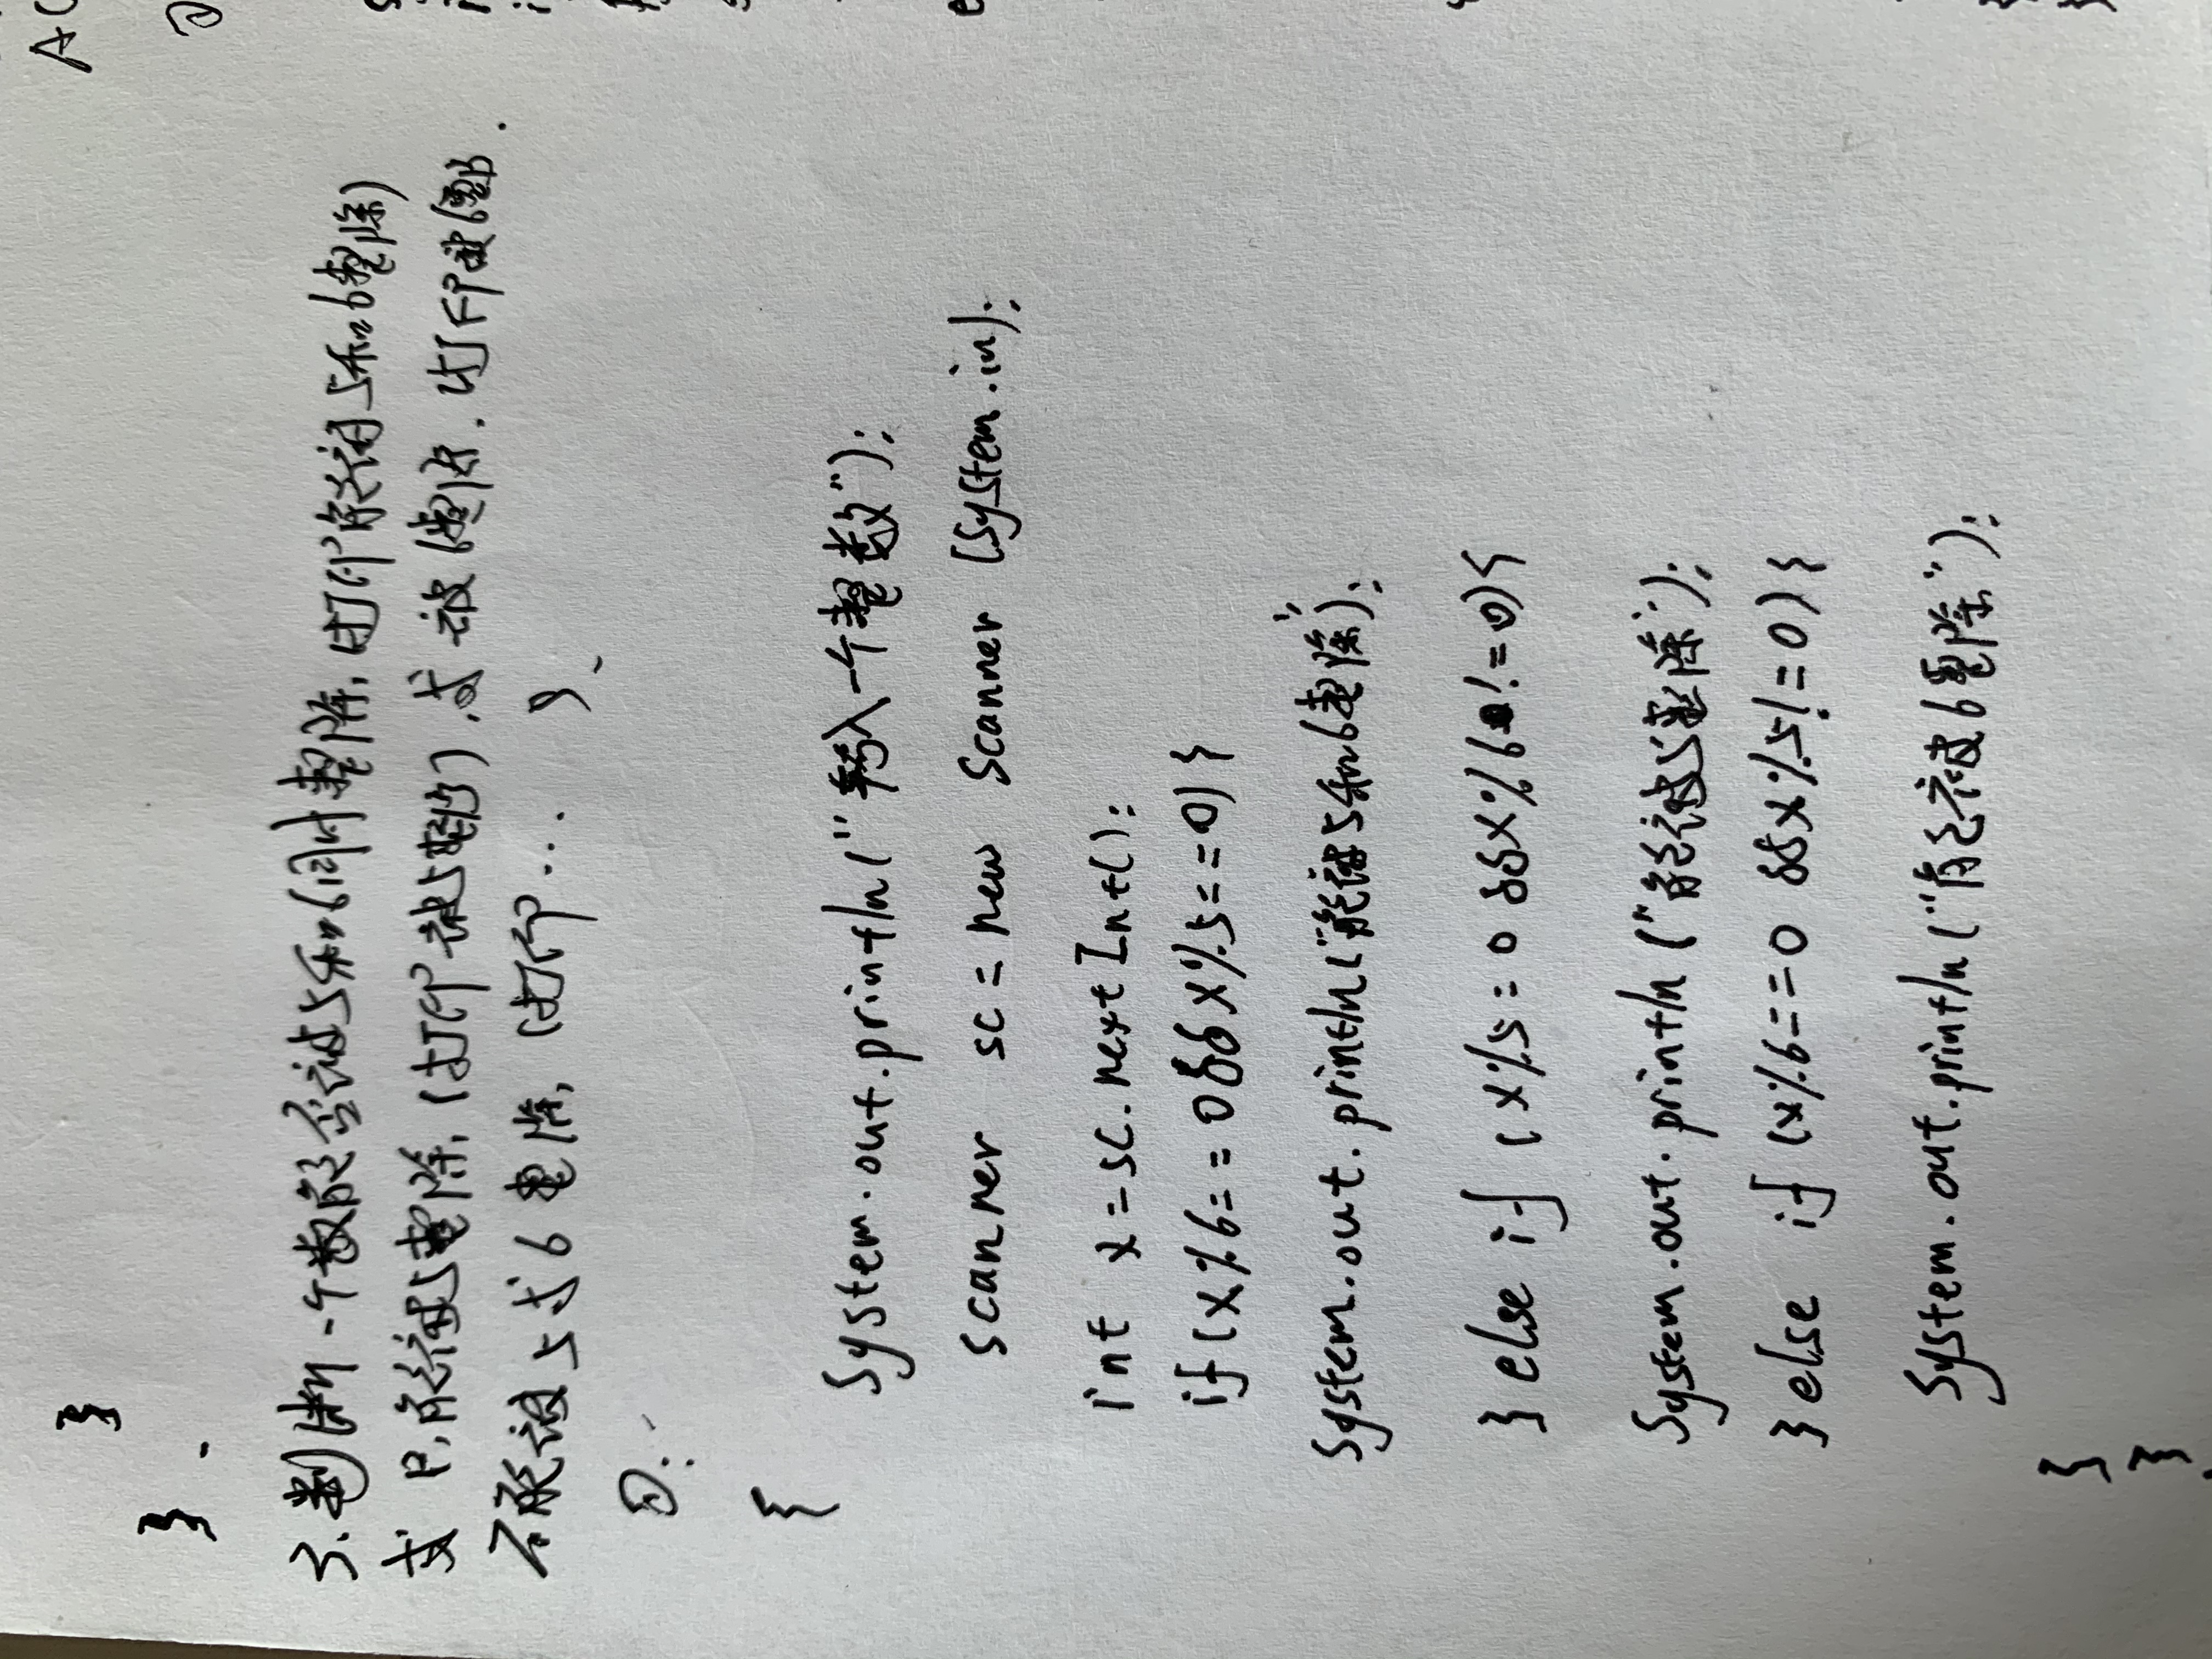 }
}
3.判断一个数能否被5和6同时整除,打印能被5和6整除)
或 只能被5整除,(打印被5整除).或被6整除.打印被6整除.
不能被5或6整除,(打印...
①:
{
System.out.println("输入一个整数");
Scanner sc = new Scanner (System.in);
int x = sc.nextInt();
if (x%6==0 && x%5==0) {
System.out.println("能被5和6整除");
} else if (x%5=0 && x%6!=0) {
System.out.println ("能被5整除");
} else if (x%6==0 && x%5!=0) {
System.out.println ("能被6整除");
}
}